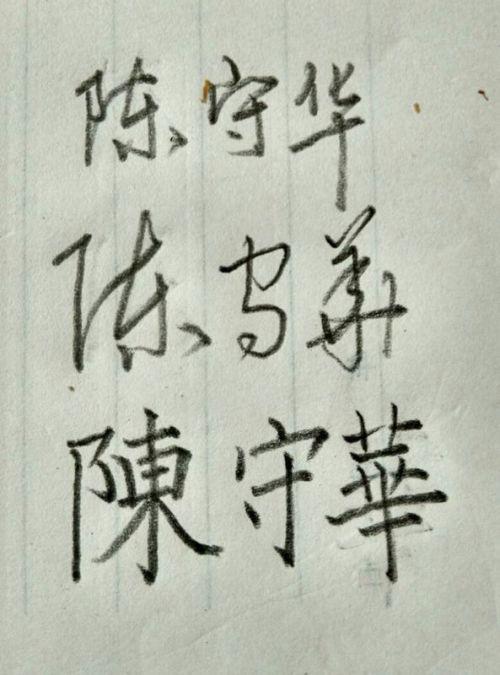 陈守华
陈守華
陳守華